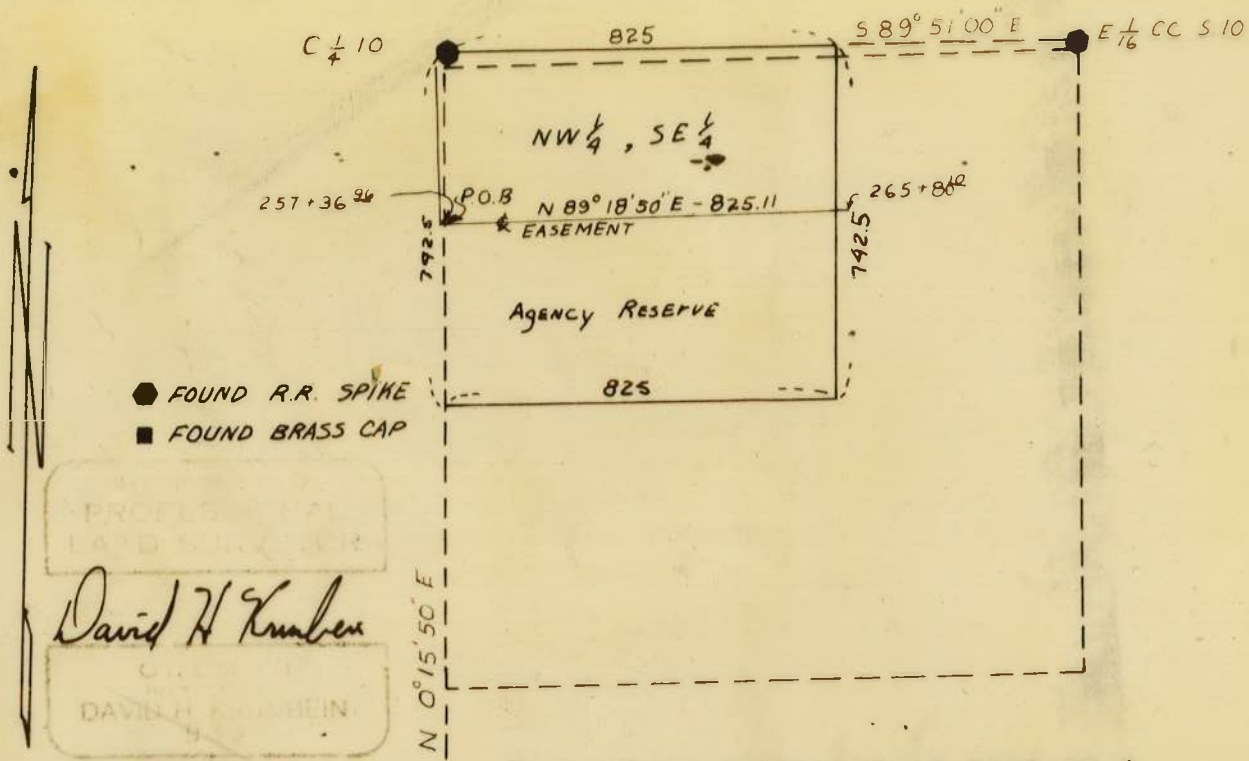 C 1/4 10
825
S 89° 51' 00" E
E 1/16 CC S 10
NW 1/4 , SE 1/4
257 + 36 96
P.O.B
N 89° 18' 50" E - 825.11
EASEMENT
792.5
742.5
Agency Reserve
825
FOUND R.R. SPIKE
FOUND BRASS CAP
PROFESSIONAL
LAND SURVEYOR
David H Krumbein
DAVID H. KRUMBEIN
N 0° 15' 50" E